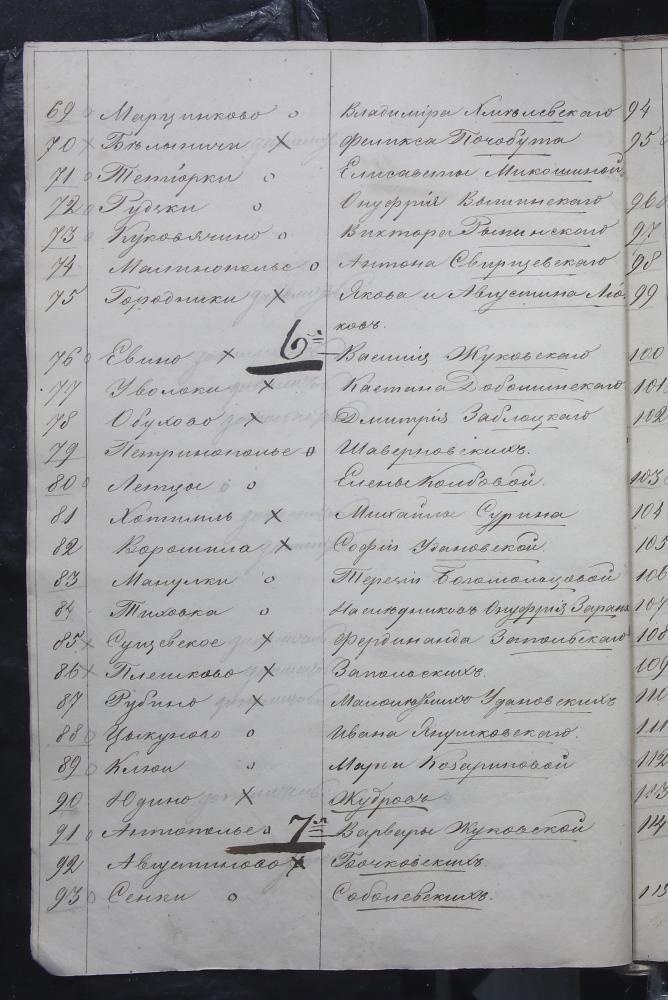 69 Марцинково о Владимира Хмѣлевскаго 94
70 х Бѣлыничи х Феликса Почобута 95
71 о Тетюрки о Елисаветы Микошиной
72 о Гудзки о Онуфрія Вышинскаго 96
73 Куковячино о Виктора Рыпинскаго 97
74 Малинополье о Антона Свирщевскаго 98
75 Городники х Якова и Августина Лю- 99
ковъ.
6
76 о Евино х Василія Жуковскаго 100
77 Уволоки х Каетана Добошинскаго 101
78 Обухово х Дмитрія Заблоцкаго 102
79 Петринополье о Шаверновскихъ.
80 о Летцы о Елены Колбовой. 103
81 Хотимль х Михайлы Сурина 104
82 Ворошила х Софіи Улановской. 105
83 Манулки о Терезіи Богомольцовой 106
84 Тиховка о Наслѣдниковъ Онуфрія Заранка 107
85 х Сущевское х Фердинанда Запольскаго 108
86 х Плешково х Запольскихъ. 109
87 Рубино х Малолѣтнихъ Улановскихъ 110
88 о Цыкуново о Ивана Янушковскаго. 111
89 о Клюи о Марьи Кобариновой 112
90 Юдино х 113
91 о Антополье о 7 Варвары Жуковской 114
92 Августиново х Бочковскихъ.
93 о Сенки о Соболевскихъ. 115